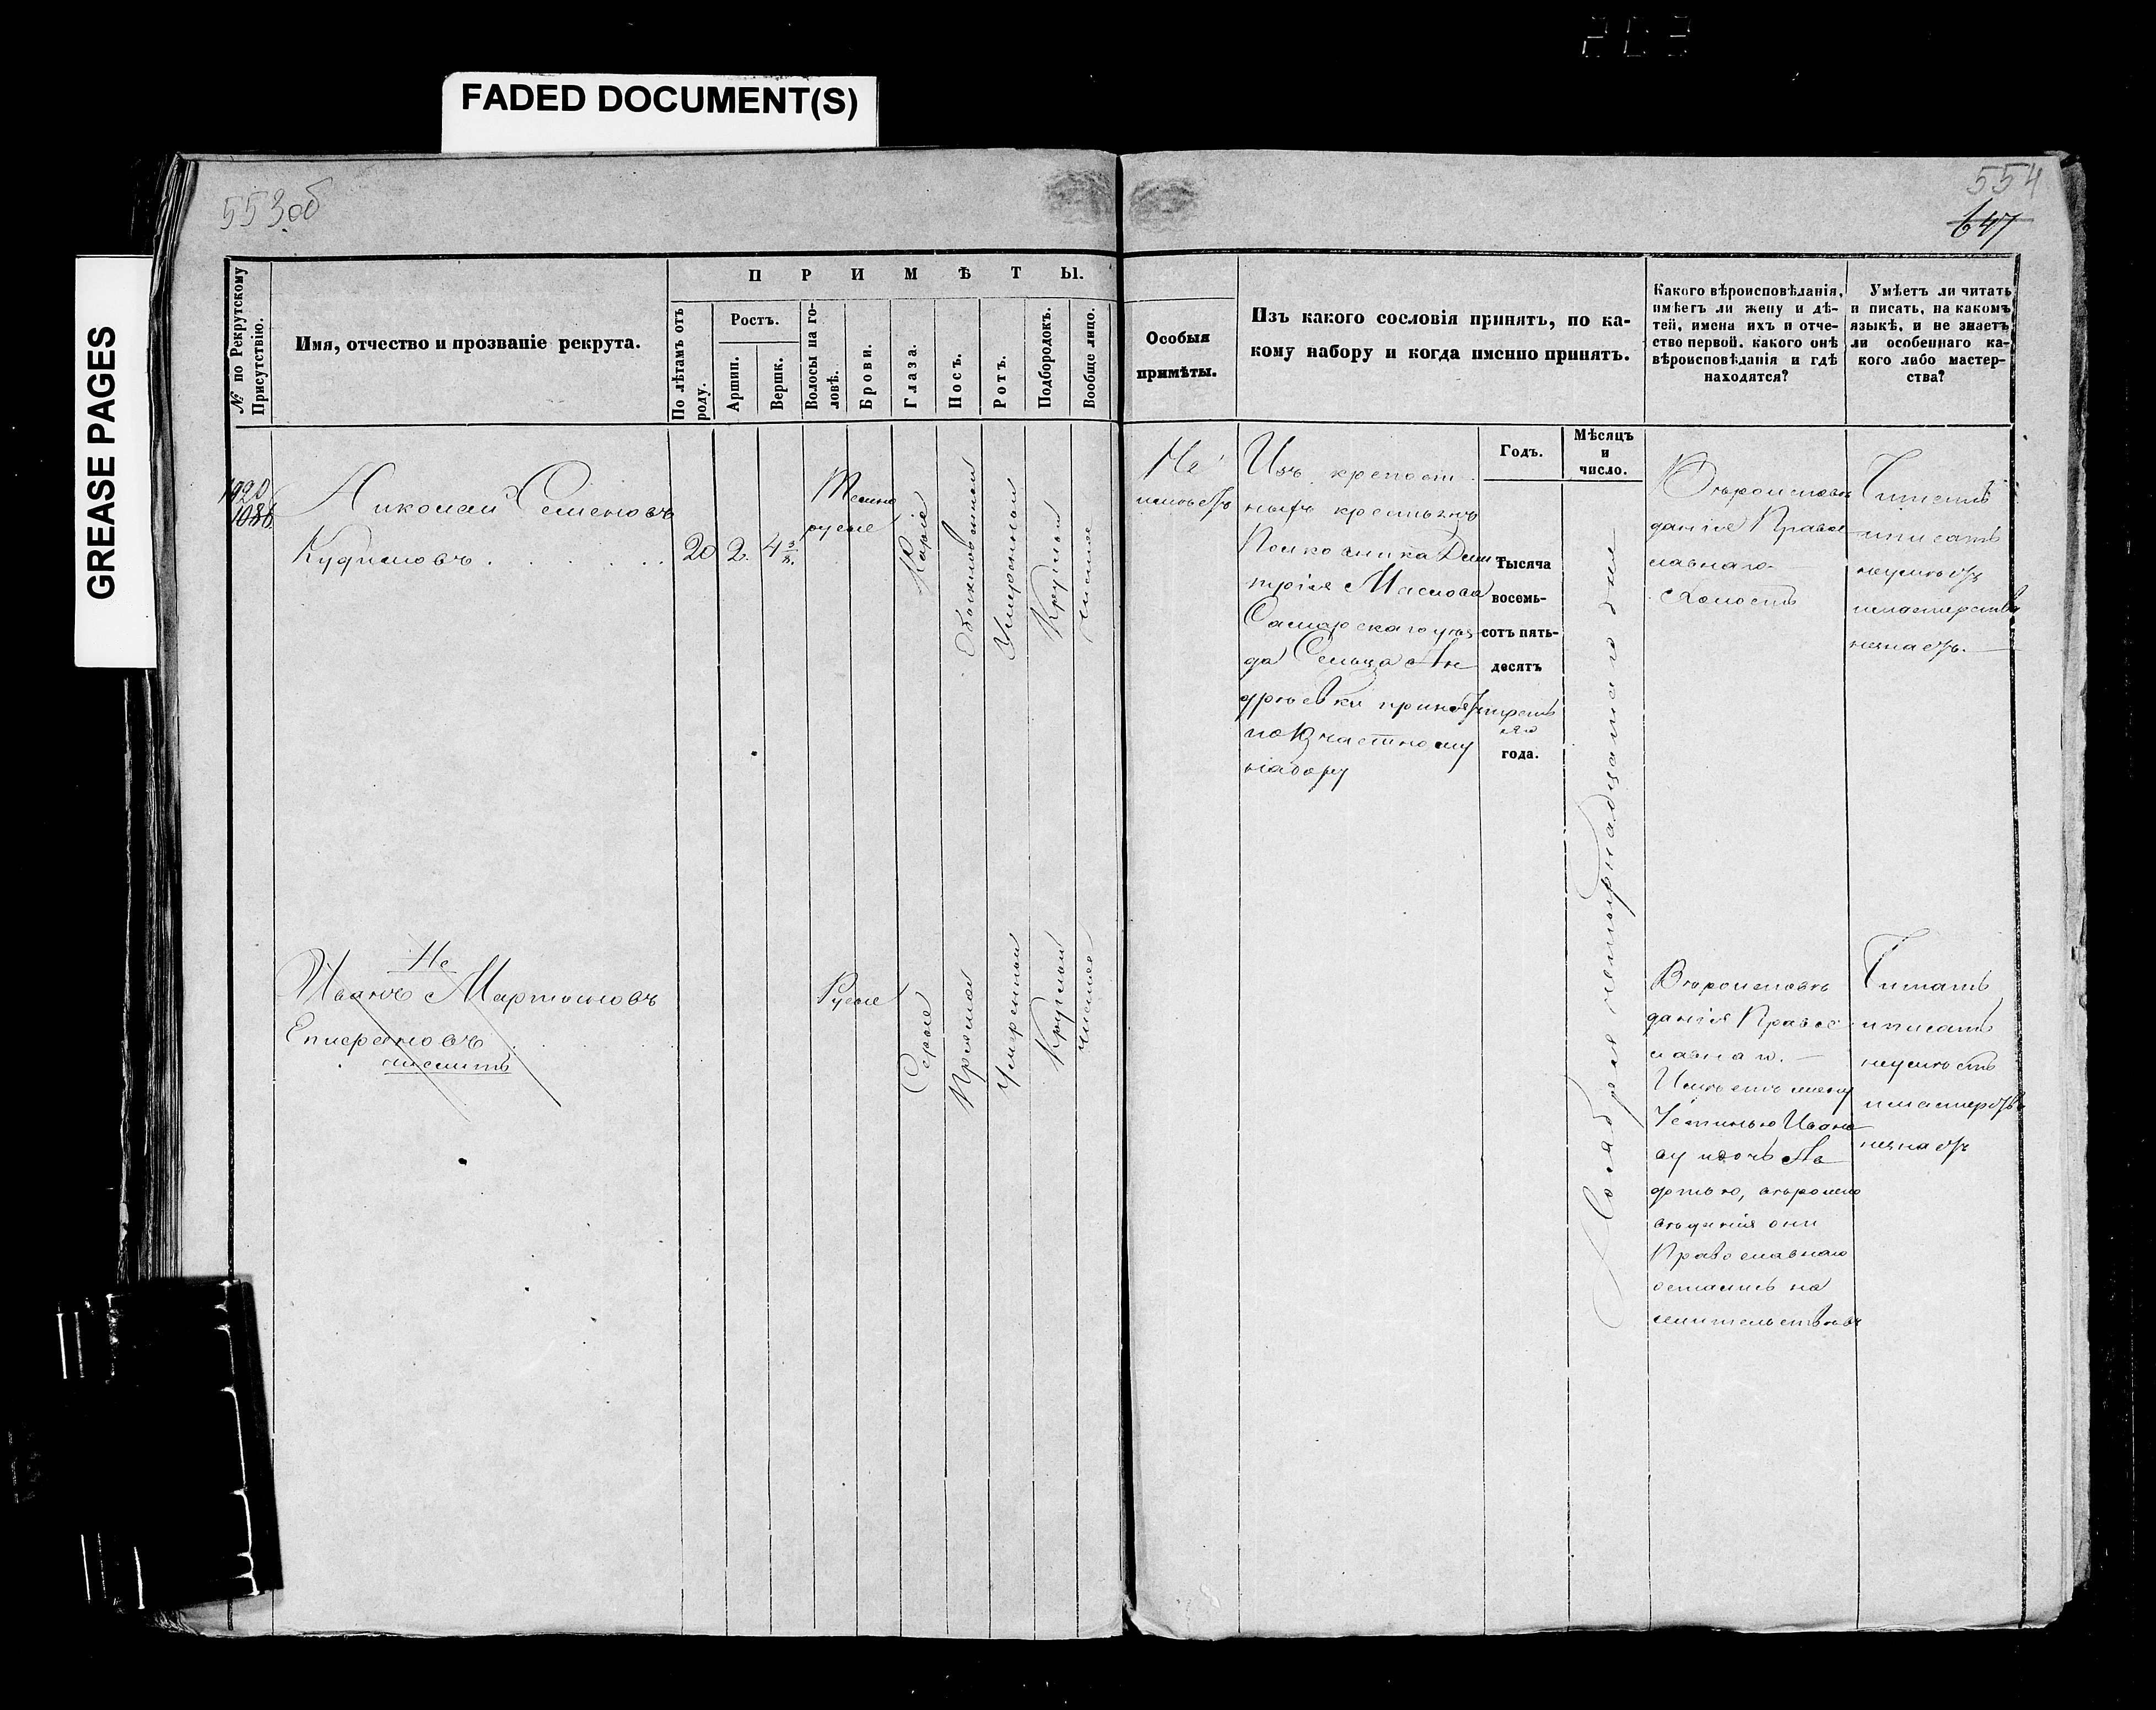 FADED DOCUMENT(S)
GREASE PAGES
553об
554
647
№ по Рекрутскому Присутствію.
Имя, отчество и прозваніе рекрута.
ПРИМѢТЫ.
По лѣтамъ отъ роду.
Ростъ.
Аршин.
Вершк.
Волосы на головѣ.
Брови.
Глаза.
Носъ.
Ротъ.
Подбородокъ.
Вообще лицо.
Особыя
примѣты.
Изъ какого сословія принятъ, по ка-
кому набору и когда именно принятъ.
Какого вѣроисповѣданія,
имѣетъ ли жену и дѣ-
тей, имена ихъ и отче-
ство первой, какого онѣ
вѣроисповѣданія и гдѣ
находятся?
Умѣетъ ли читать
и писать, на какомъ
языкѣ, и не знаетъ
ли особеннаго ка-
кого либо мастер-
ства?
Годъ.
Мѣсяцъ
и
число.
1920
1086
Николай Семеновъ
20
2.
Темно
русые
Каріе
Обыкновенный
Умеренный
Круглый
Чистое
Не
имѣетъ
Изъ крепост
ныхъ крестьянъ
Полковника Дми
трія Маслова
Самарскаго уѣз
да Сельца Ан
дрѣевки принятъ
по 10 частному
набору
Тысяча
восемь-
сотъ пять-
десятъ
третья
го
года.
Ноября четырнадцатаго дня
Вѣроисповѣ
данія Право
славнаго
Холостъ
Читать
и писать
неумѣетъ
и мастерства
незнаетъ.
Не
Иванъ Мартыновъ
Русые
Серые
Прямой
Умеренный
Круглый
Чистое
Вѣроисповѣ
данія Право
славнаго.
Имѣетъ жену
Устинью Ивано
ву и дочь Ав
дотью, вѣроиспо
вѣданія они
Православнаго
остались на
жительствѣ въ
Читать
и писать
неумѣетъ
и мастерства
незнаетъ